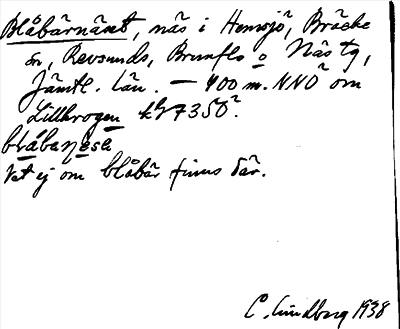 Blåbärnäset, näs i Hemsjö, Bräcke
sn, Revsunds, Brunflo o Näs tg,
Jämtl. län. — 400 m. NNO om
Lillkrogen
blåbaṇese
Vet ej om blåbär finns där.
C. Lindberg 1938